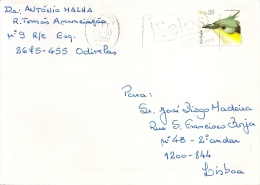 De: ANTÓNIO MALHA
R. Tomás Amunciação
nº 9 R/c Esq.
2675-455 Odivelas
Para:
Sr. José Diogo Madeira
Rua S. Francisco Borja
nº 48 - 2º andar
1200-844
Lisboa